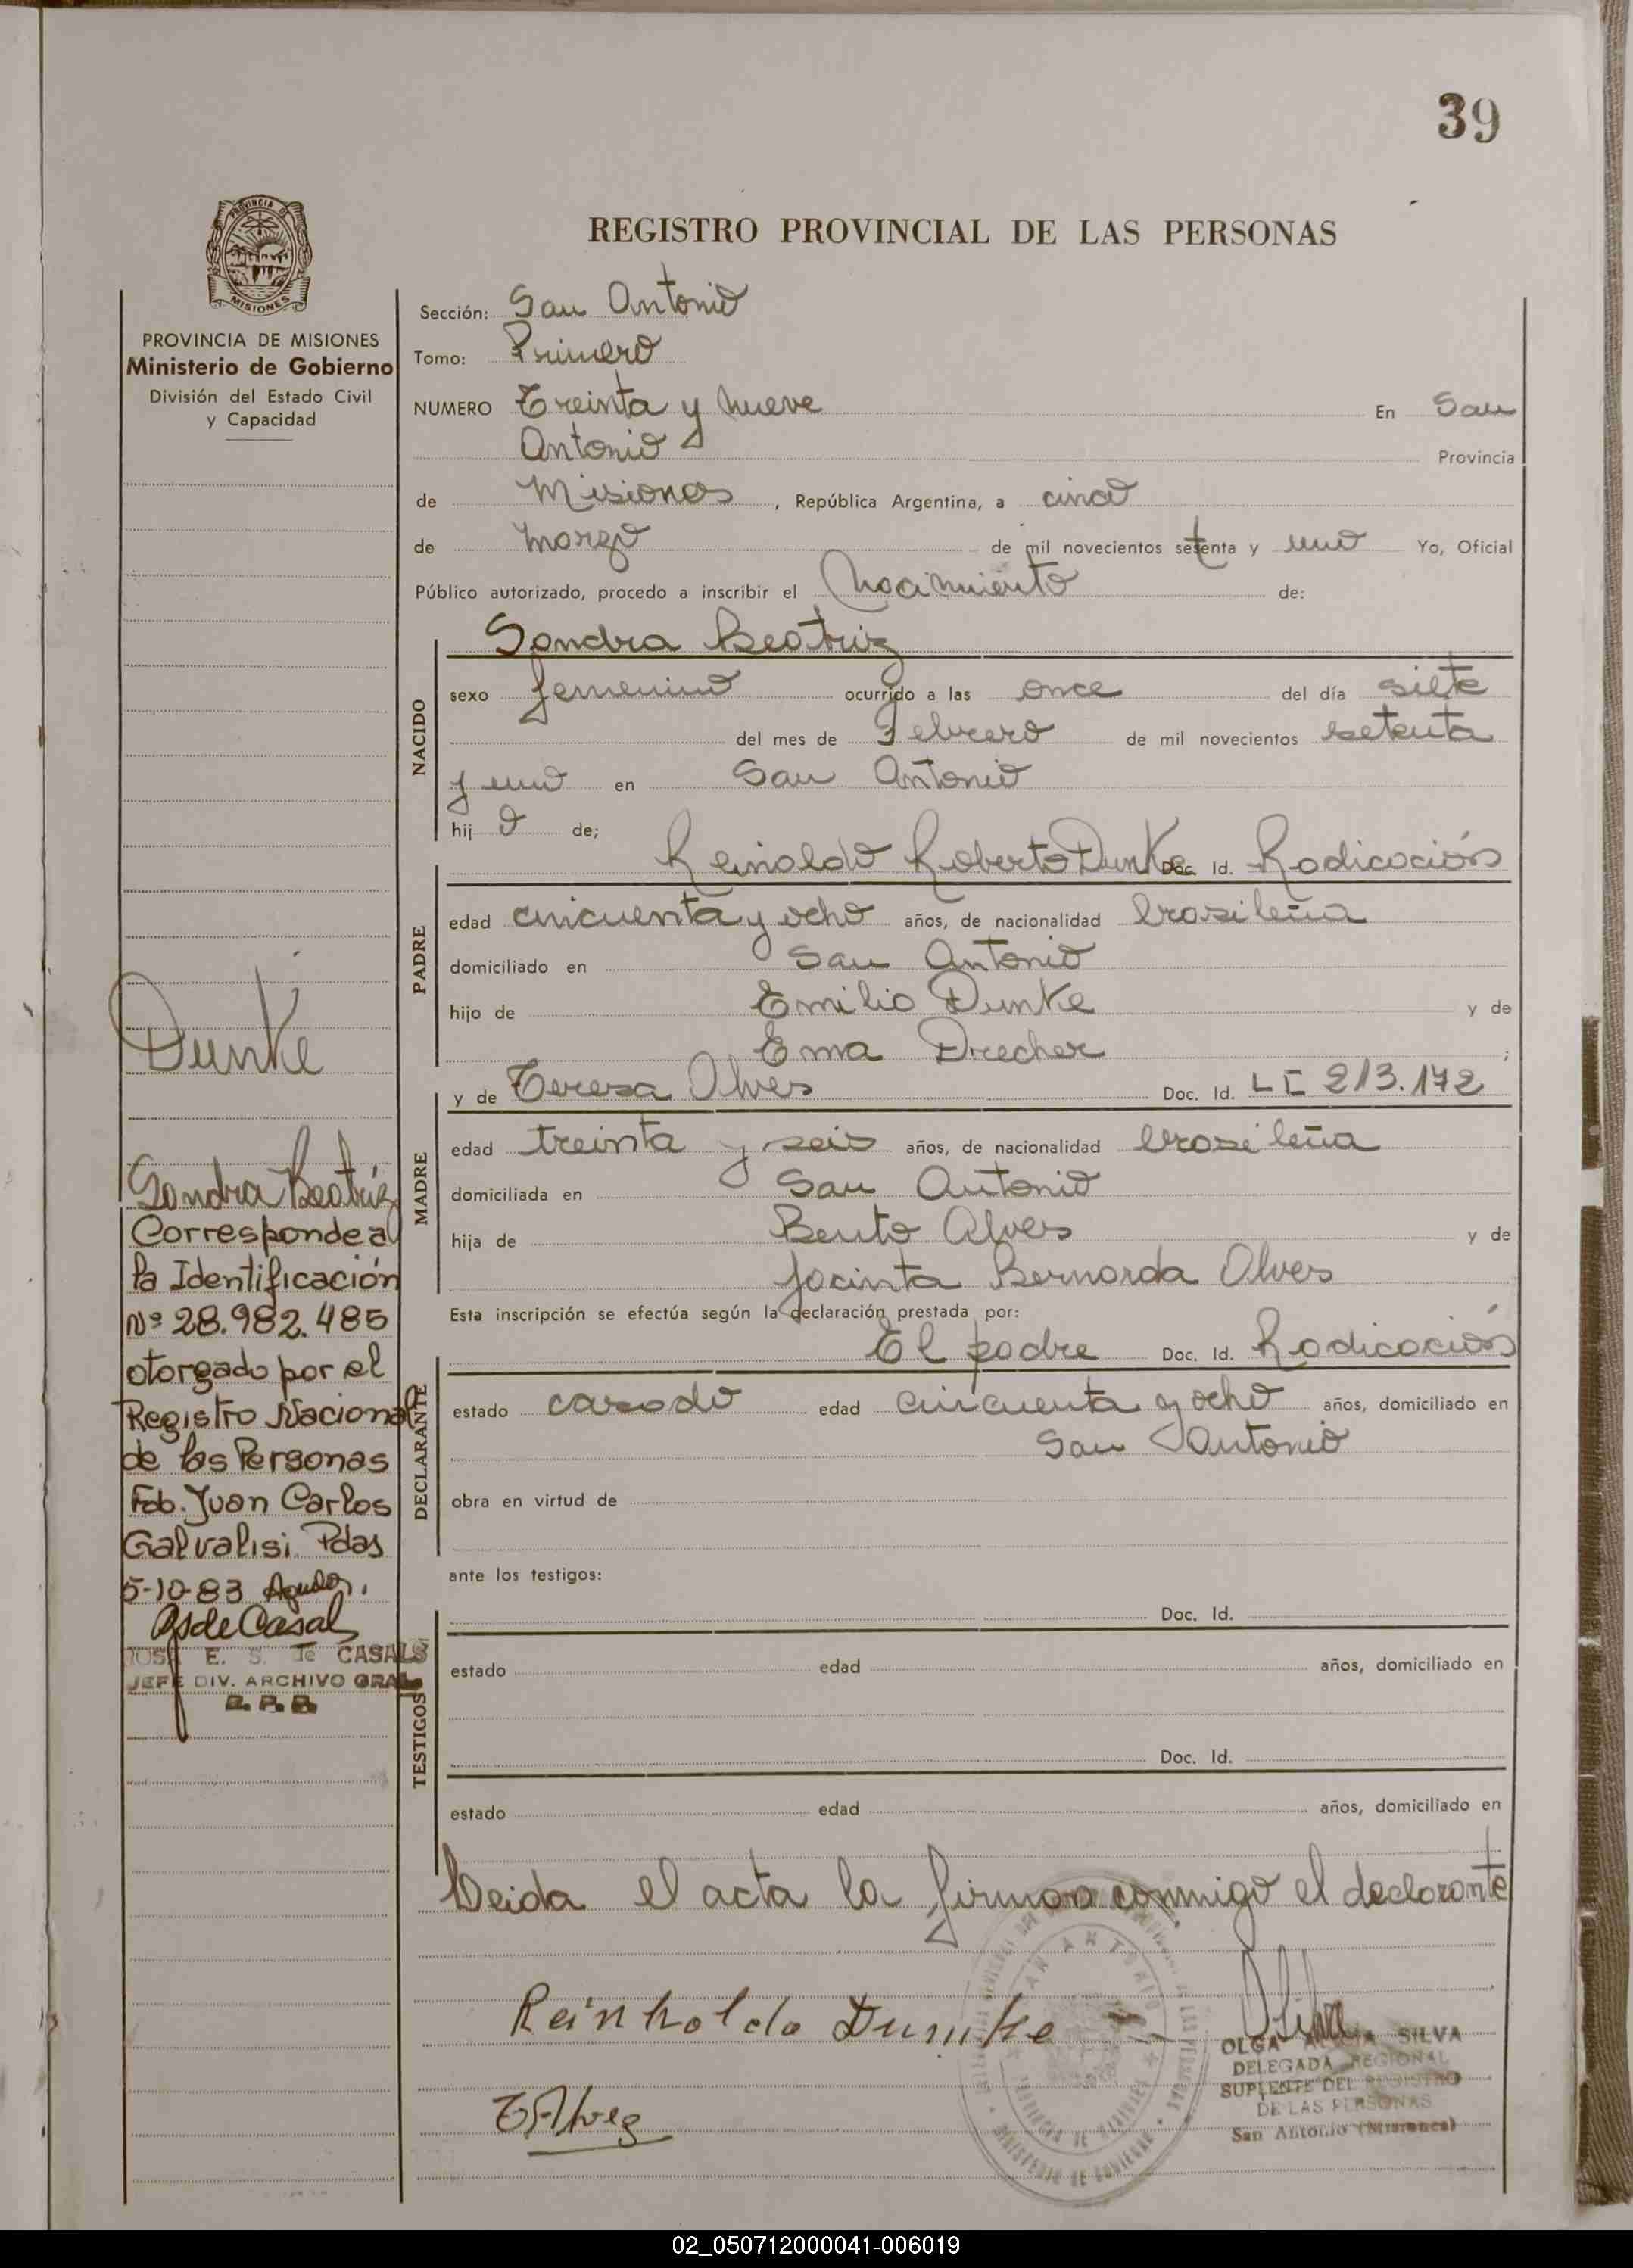 39
PROVINCIA DE
MISIONES
PROVINCIA DE MISIONES
Ministerio de Gobierno
División del Estado Civil
y Capacidad
REGISTRO PROVINCIAL DE LAS PERSONAS
Sección: San Antonio
Tomo: Primero
NUMERO Treinta y nueve En San
Antonio Provincia
de Misiones, República Argentina, a cinco
de Marzo de mil novecientos setenta y uno Yo, Oficial
Público autorizado, procedo a inscribir el Nacimiento de:
NACIDO
Sandra Beatriz
sexo femenino ocurrido a las once del día siete
del mes de Febrero de mil novecientos setenta
y uno en San Antonio
hij a de;
PADRE
Reinaldo Roberto Dunke Doc. Id. Radicación
edad cincuenta y ocho años, de nacionalidad brasileña
domiciliado en San Antonio
hijo de Emilio Dunke y de
Ema Drecher ;
MADRE
y de Teresa Alves Doc. Id. LC 213.172
edad treinta y seis años, de nacionalidad brasileña
domiciliada en San Antonio
hija de Bento Alves y de
Jacinta Bernarda Alves
Esta inscripción se efectúa según la declaración prestada por:
DECLARANTE
El padre Doc. Id. Radicación
estado casado edad cincuenta y ocho años, domiciliado en
San Antonio
obra en virtud de
ante los testigos:
TESTIGOS
Doc. Id.
estado edad años, domiciliado en
Doc. Id.
estado edad años, domiciliado en
Leida el acta la firman conmigo el declarante
Reinholdo Dumke
TAlves
SAN ANTONIO
PROVINCIA DE MISIONES
MINISTERIO DE GOBIERNO
OLGA ALICIA SILVA
DELEGADA REGIONAL
SUPLENTE DEL REGISTRO
DE LAS PERSONAS
San Antonio (Misiones)
Dunke
Sandra Beatriz
Corresponde al
la Identificación
Nº 28.982.485
otorgado por el
Registro Nacional
de las Personas
Fdo. Juan Carlos
Galvalisi. Pdas
5-10-83
GsdeCasals
E. S. de CASALS
JEFE DIV. ARCHIVO GRAL
02_050712000041-006019